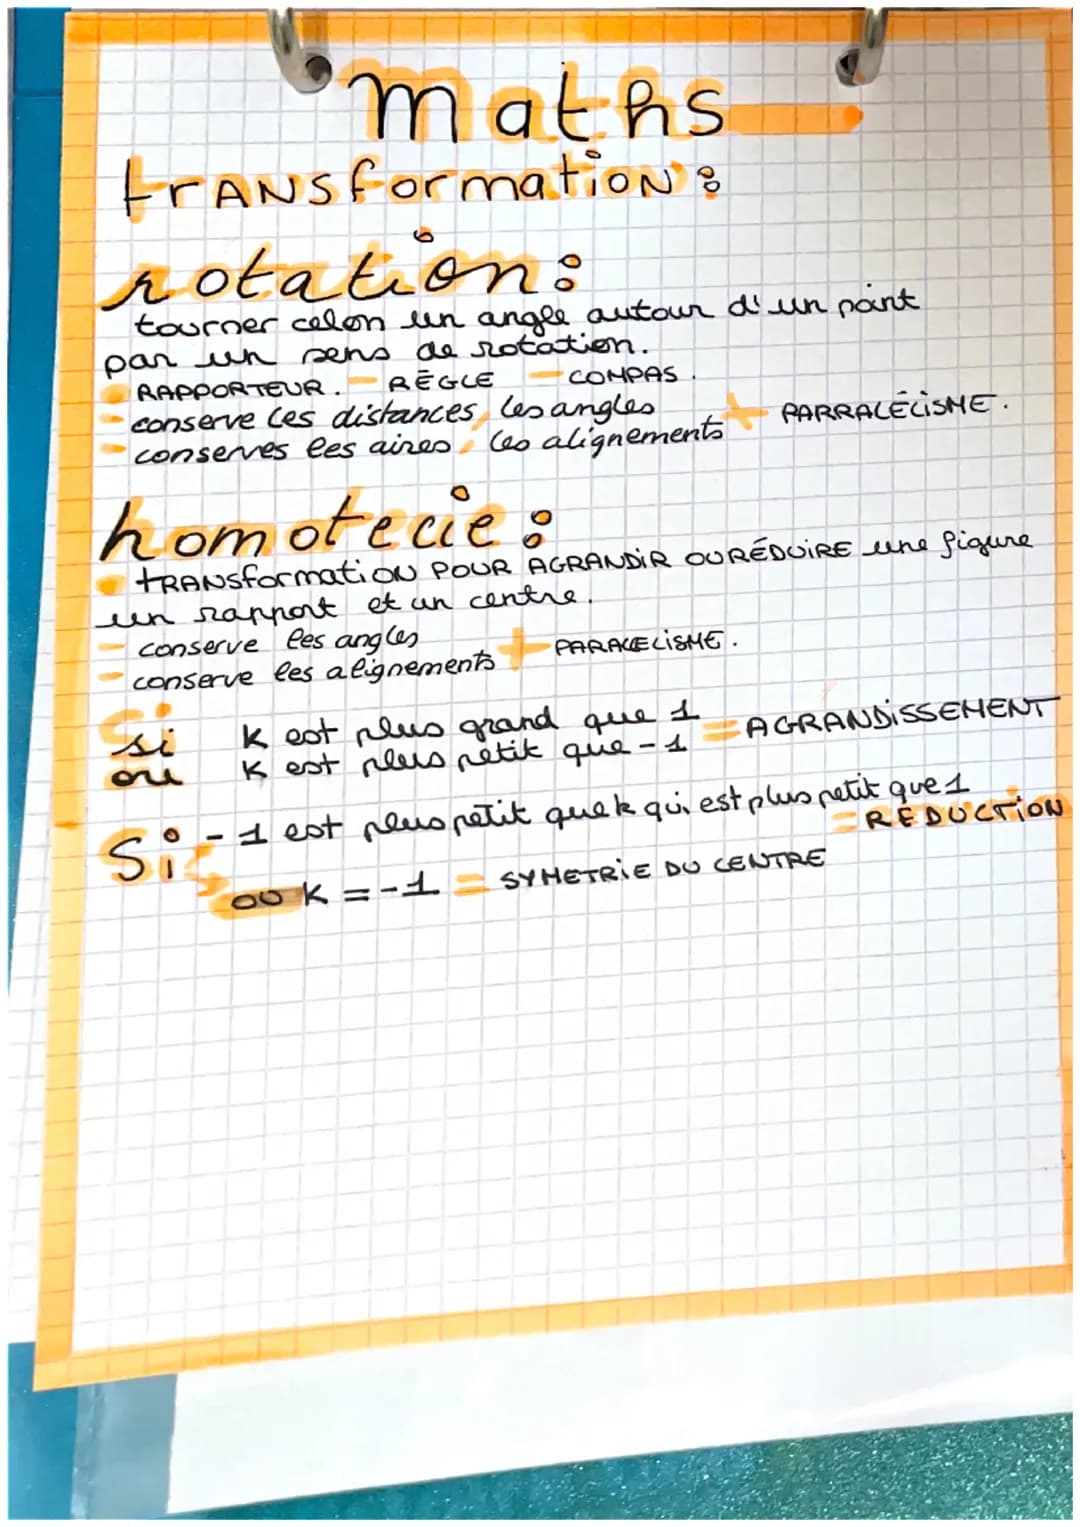 maths
trANSformatioN :
rotation :
tourner celon un angle autour d'un point
par un sens de rotation.
RAPPORTEUR. - RÈGLE - COMPAS.
- conserve les distances, les angles
- conserves les aires, les alignements + PARRALÉLISME.
homotecie :
tRANSformatiON POUR AGRANDIR OU RÉDUIRE une figure
un rapport et un centre.
- conserve les angles
- conserve les alignements + PARALELISME.
si K est plus grand que 1
ou K est plus petit que -1 = AGRANDISSEMENT
Si -1 est plus petit que k qui est plus petit que 1
= RÉDUCTION
ou K = -1 = SYMETRIE DU CENTRE